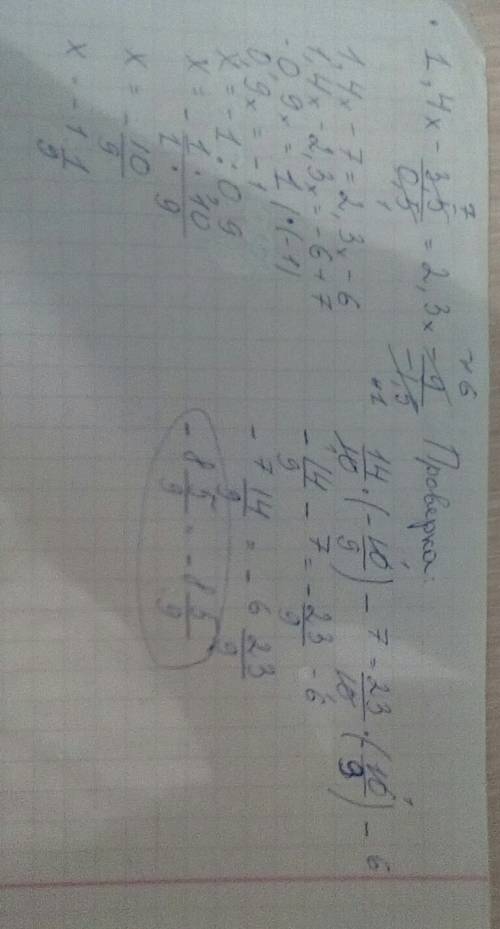 1,4x - 3,5/0,5 = 2,3x - 9/-1,5
7
1
+6
+1
1,4x - 7 = 2,3x - 6
1,4x - 2,3x = -6 + 7
-0,9x = 1 | · (-1)
0,9x = -1
x = -1 : 0,9
x = - 1/1 · 10/9
x = - 10/9
x = -1 1/9
Проверка:
14/10 · (- 10/9) - 7 = 23/10 · (- 10/9) - 6
- 14/9 - 7 = - 23/9 - 6
- 7 14/9 = - 6 23/9
- 8 5/9 = - 8 5/9